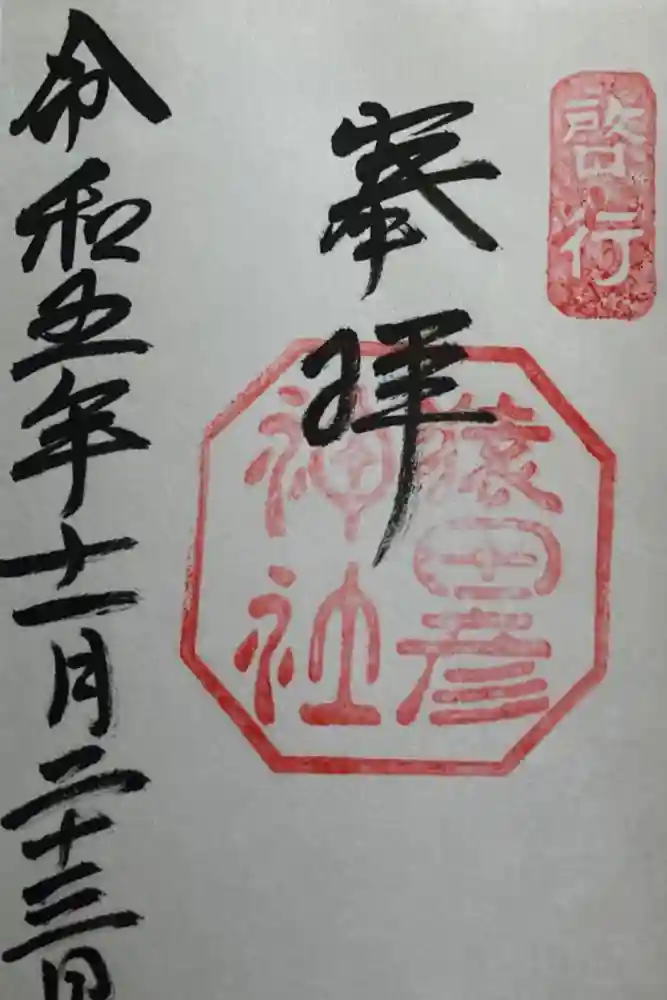 啓行
奉拝
猿田彦
神社
令和五年十一月二十三日